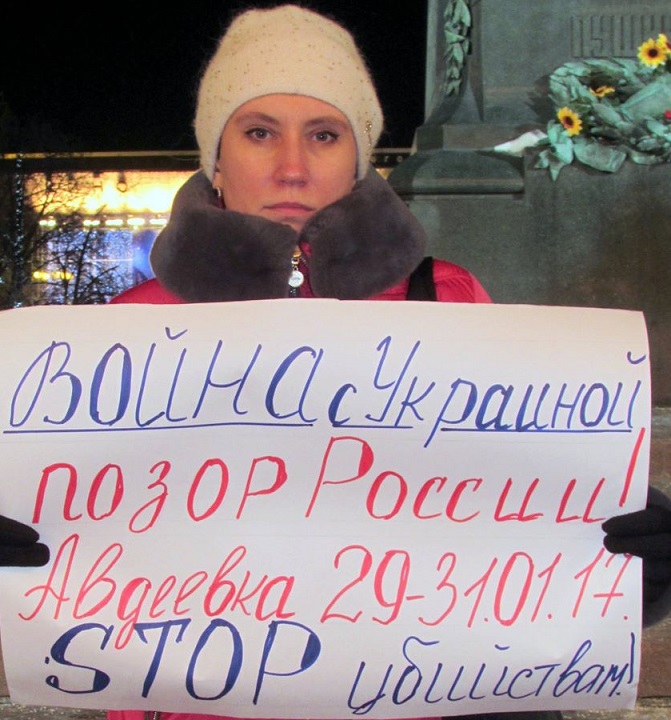 ПУШК
ВОЙНА с Украиной
позор России!
Авдеевка 29-31.01.17.
STOP убийствам!